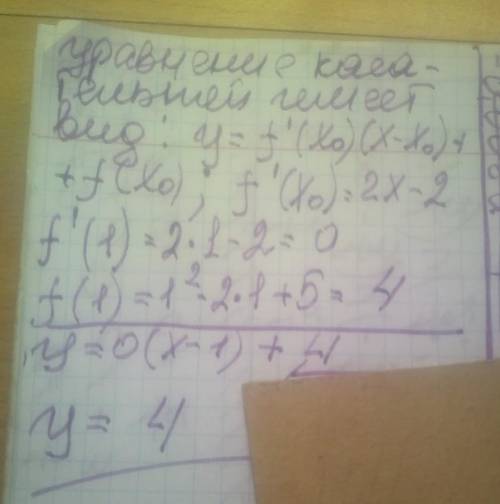 уравнение каса-
тельной имеет
вид: y = f'(x₀)(x-x₀)+
+f(x₀); f'(x₀)=2x-2
f'(1)=2·1-2=0
f(1)=1²-2·1+5=4
y=0(x-1)+4
y=4